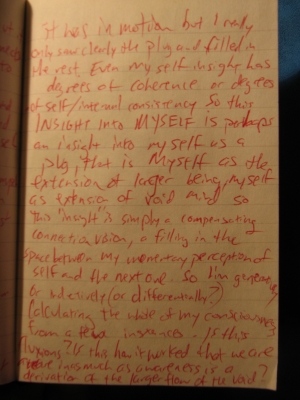 it has in motion but I really
only saw clearly the plug and filled in
the rest. Even my self insight has
degrees of coherence or degrees
of self/internal consistency so this
INSIGHT INTO MYSELF is perhaps
an insight into myself as a
plug, that is MYSELF as the
extension of larger being, myself
as extension of void mind so
this "insight" is simply a compensating
connection vision, a filling in the
space between my momentary perception of
self and the next one. So I'm generally
or indirectly (or differentially?)
calculating the whole of my consciousness
from a few instances. Is this
Is this how it worked that we are
inasmuch as awareness is a
derivation of the larger flow of the void?